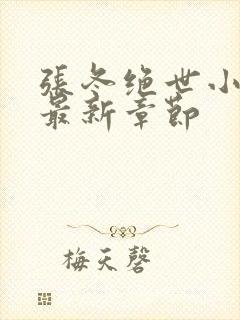 張冬绝世小
最新章節
梅天磬